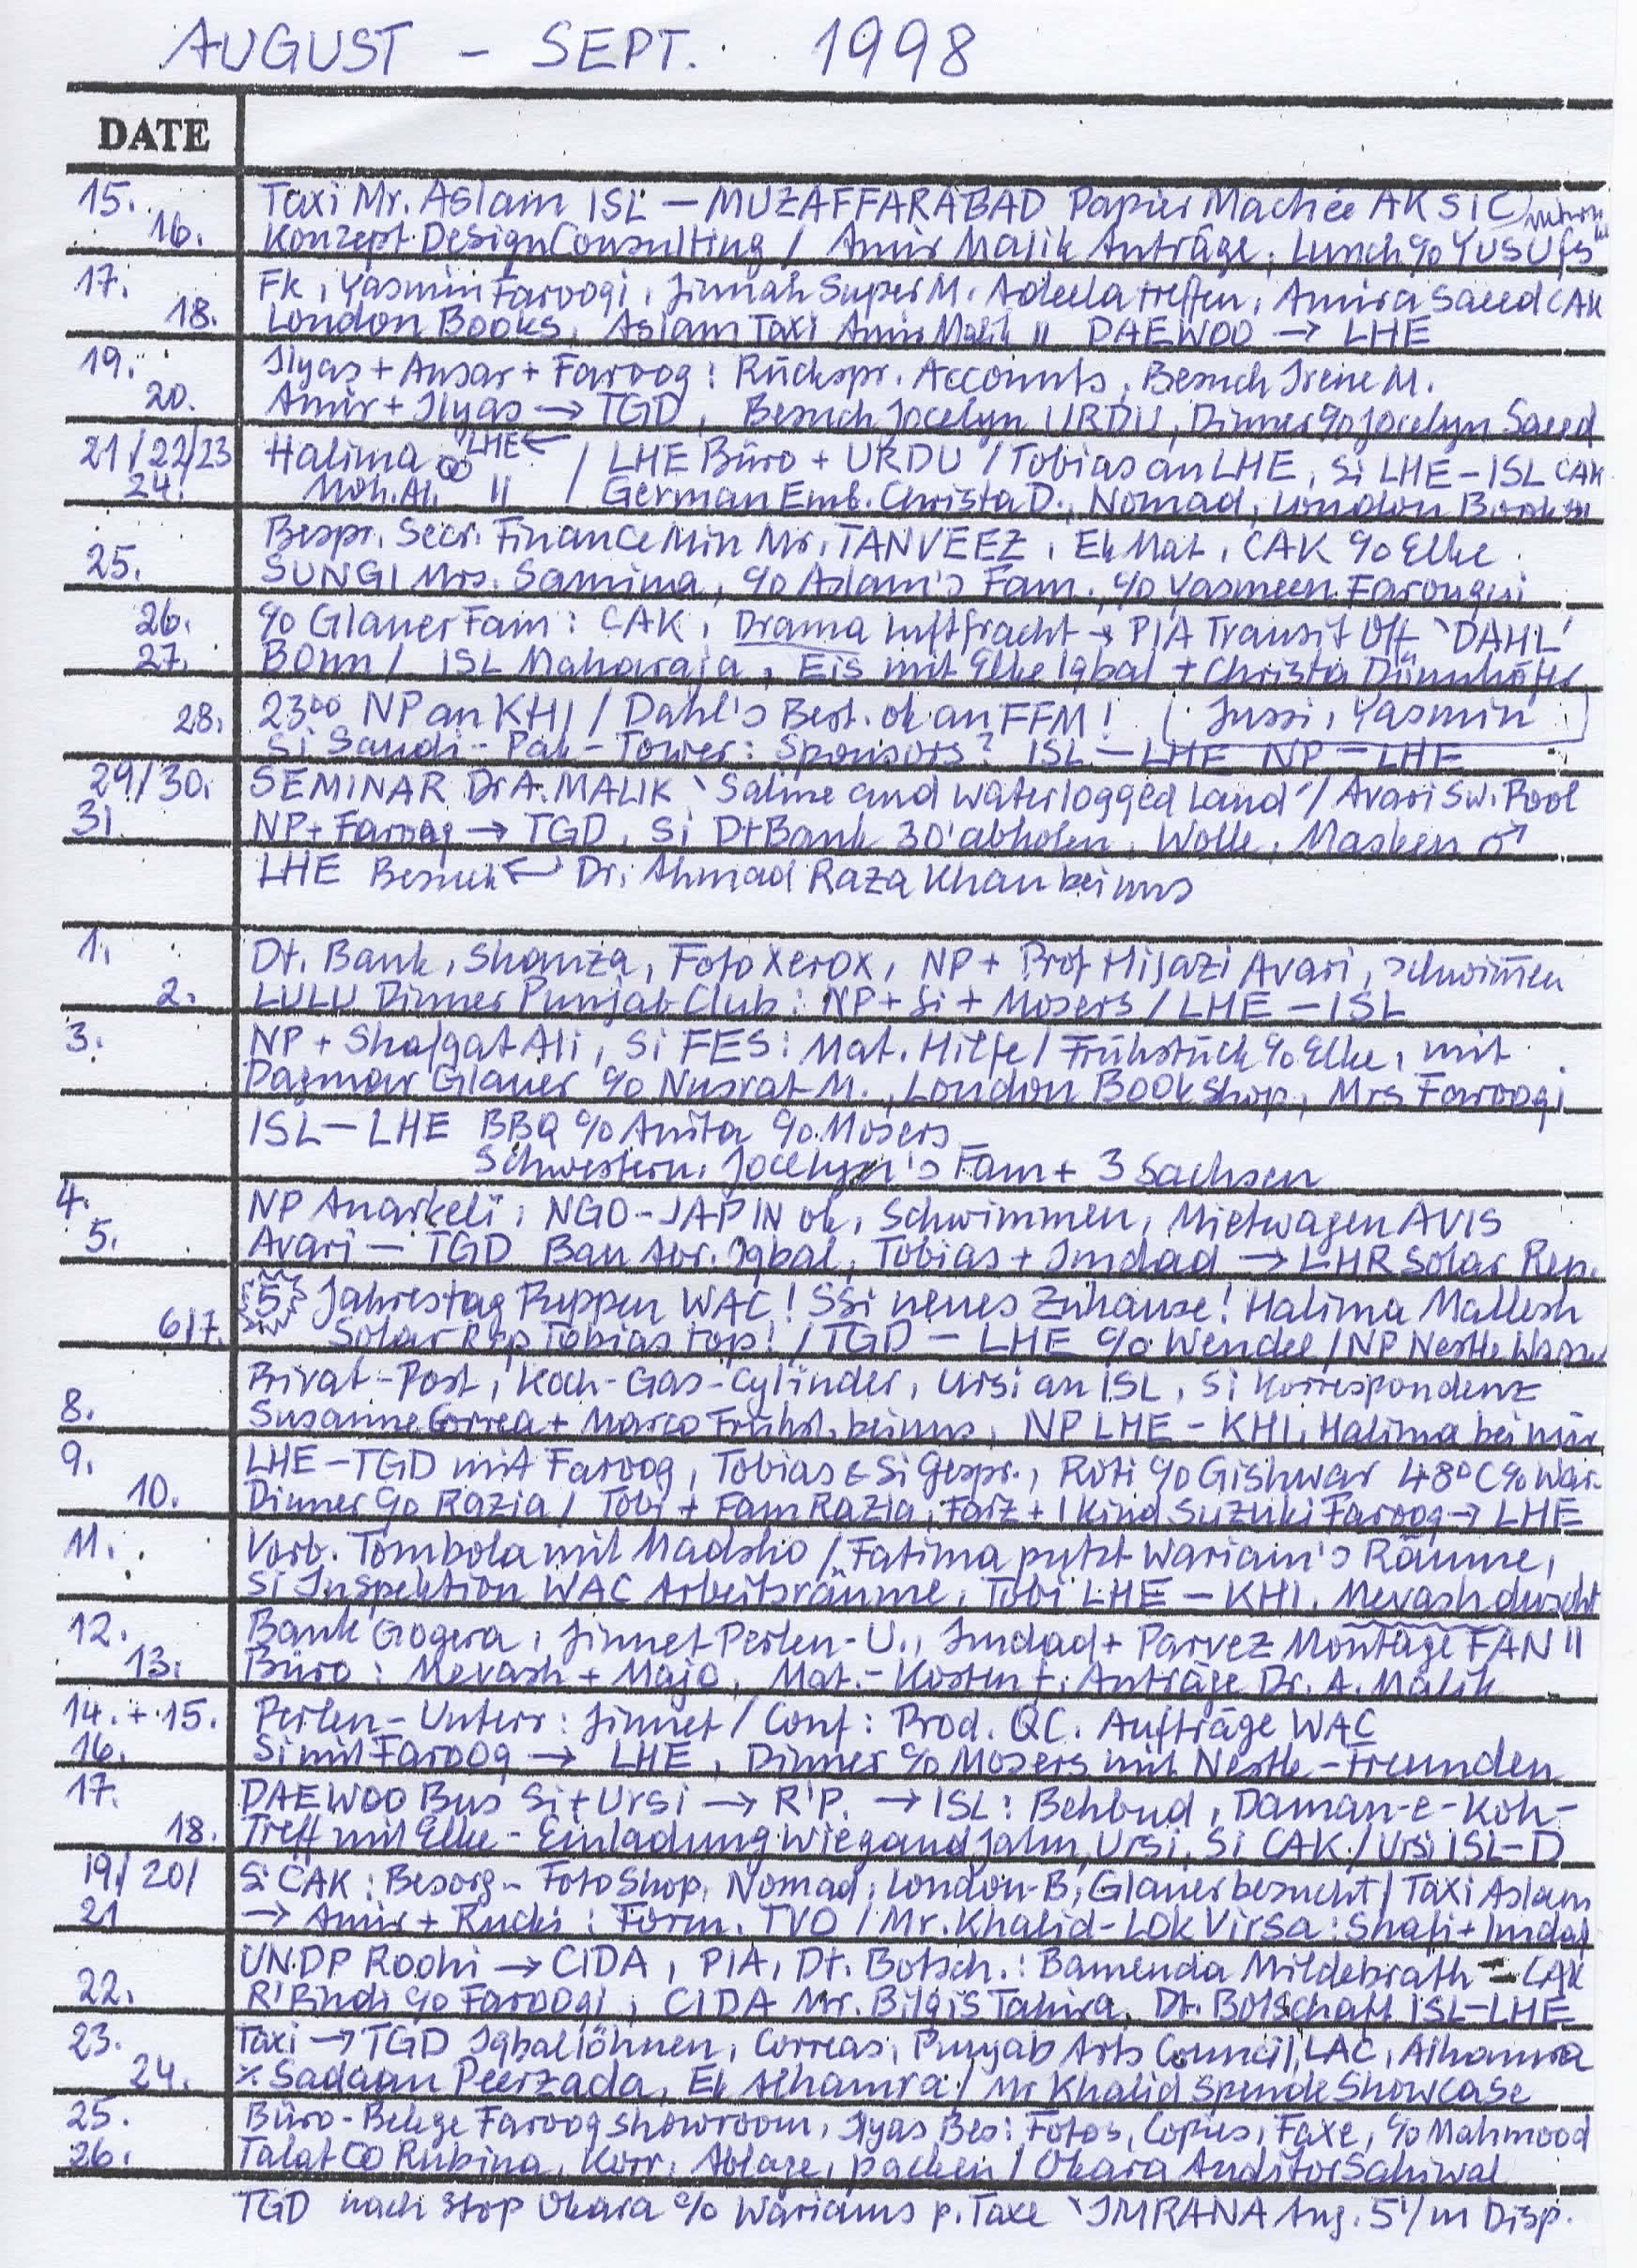 AUGUST – SEPT. 1998
DATE
15. Taxi Mr. Aslam ISL – MUZAFFARABAD Papier Machée AKSIC
16. Konzept DesignConsulting / Amir Malik Anträge, Lunch c/o YUSUfs
17. Fk, Yasmin Faroogi, Jinnah Super M. Adeela treffen, Amira Saeed CAK
18. London Books, Aslam Taxi Amir Malik " DAEWOO → LHE
19. Ilyas + Ansar + Faroog: Rückspr. Accounts, Besuch Irene M.
20. Amir + Ilyas → TGD, Besuch Jocelyn URDU, Dinner c/o Jocelyn Saeed
21/22/23 Halima LHE ← / LHE Büro + URDU / Tobias an LHE, Si LHE–ISL CAK
24. Moh. Al. " / German Emb. Christa D., Nomad, London Books
Bespr. Secr. Finance Min Mr. TANVEEZ, Ek Mat, CAK c/o Elke
25. SUNGI Mrs. Samima, c/o Aslam's Fam., c/o Yasmeen Farouqui
26. c/o Glauer Fam: CAK, Drama Luftfracht → PIA Transit Off. 'DAHL'
27. Bonn / ISL Maharaja, Eis mit Elke Iqbal + Christa
28. 23⁰⁰ NP an KHI / Dahl's Best. ok an FFM! (Jussi, Yasmin)
Si Saudi-Pak-Tower: Sponsors? ISL – LHE NP – LHE
29/30. SEMINAR Dr A. MALIK 'Saline and waterlogged Land' / Avari Sw. Pool
31 NP + Faroog → TGD, Si Dt Bank 30' abholen, Wolle, Masken ♂
LHE Besuch ↩ Dr. Ahmad Raza Khan bei uns
1. Dt. Bank, Shanza, Foto Xerox, NP + Prof Hijazi Avari, schwimmen
2. LULU Dinner Punjab Club: NP + Si + Mosers / LHE – ISL
3. NP + Shafgat Ali, Si FES: Mat. Hilfe / Frühstück c/o Elke, mit
Dagmar Glauer c/o Nusrat M., London Book Shop, Mrs Faroogi
ISL – LHE BBQ c/o Anita c/o Mosers
Schwestern, Jocelyn's Fam + 3 Sachsen
4. NP Anarkeli, NGO-JAPIN ok, Schwimmen, Mietwagen AVIS
5. Avari – TGD Bau Abr. Iqbal, Tobias + Imdad → LHR Solar Rep.
5 Jahrestag Puppen WAC! SSi neues Zuhause! Halima Mallesh
6/7. Solar Rep Tobias top! / TGD – LHE c/o Wendel / NP Nestle Wasser
Privat-Post, Koch-Gas-Cylinder, Ursi an ISL, Si Korrespondenz
8. Susanne Correa + Marco Frühst. bei uns, NP LHE – KHI, Halima bei mir
9. LHE – TGD mit Faroog, Tobias & Si Gespr., Roti c/o Gishwar 48°C c/o War.
10. Dinner c/o Razia / Tobi + Fam Razia, Faiz + 1 Kind Suzuki Faroog → LHE
11. Vorb. Tombola mit Madsho / Fatima putzt Wariam's Räume,
Si Inspektion WAC Arbeitsräume, Tobi LHE – KHI, Mevash duscht
12. Bank Gogera, Jinnet Perlen-U., Imdad + Parvez Montage FAN "
13. Büro: Mevash + Majo, Mat.-Kosten f. Anträge Dr. A. Malik
14. + 15. Perlen-Unterr: Jinnet / Conf: Prod. QC. Aufträge WAC
16. Si mit Faroog → LHE, Dinner c/o Mosers mit Nestle-Freunden
17. DAEWOO Bus Si + Ursi → R'P. → ISL: Behbud, Daman-e-Koh-
18. Treff mit Elke – Einladung Wiegand Jahn, Ursi, Si CAK / Ursi ISL–D
19/20/ Si CAK: Besorg – FotoShop, Nomad, London-B, Glauer besucht / Taxi Aslam
21 → Amir + Ruchi: Form. TVO / Mr. Khalid – Lok Virsa: Shafi + Imdad
UNDP Roohi → CIDA, PIA, Dt. Botsch.: Bamenda Mildebrath – CAK
22. R'Pindi c/o Faroogi, CIDA Mr. Bilgis Tahira, Dt. Botschaft ISL–LHE
23. Taxi → TGD Iqbal löhnen, Correas, Punjab Arts Council, LAC, Alhamra
24. ⁒ Sadaan Peerzada, Ek Alhamra / Mr Khalid Spende Showcase
25. Büro-Belege Faroog showroom, Ilyas Bes: Fotos, Copies, Faxe, c/o Mahmood
26. Talat CO Rubina, Korr., Ablage, packen / Okara Auditor Sahiwal
TGD nach Stop Okara c/o Wariams p. Taxe 'IMRANA Aug. 5'/m Disp.